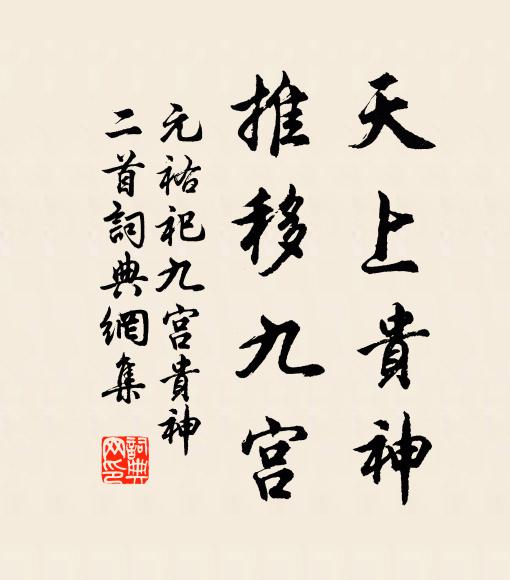 天上貴神
推移九宮
元祐祀九宮貴神
二首詞典網集
詞典
网印